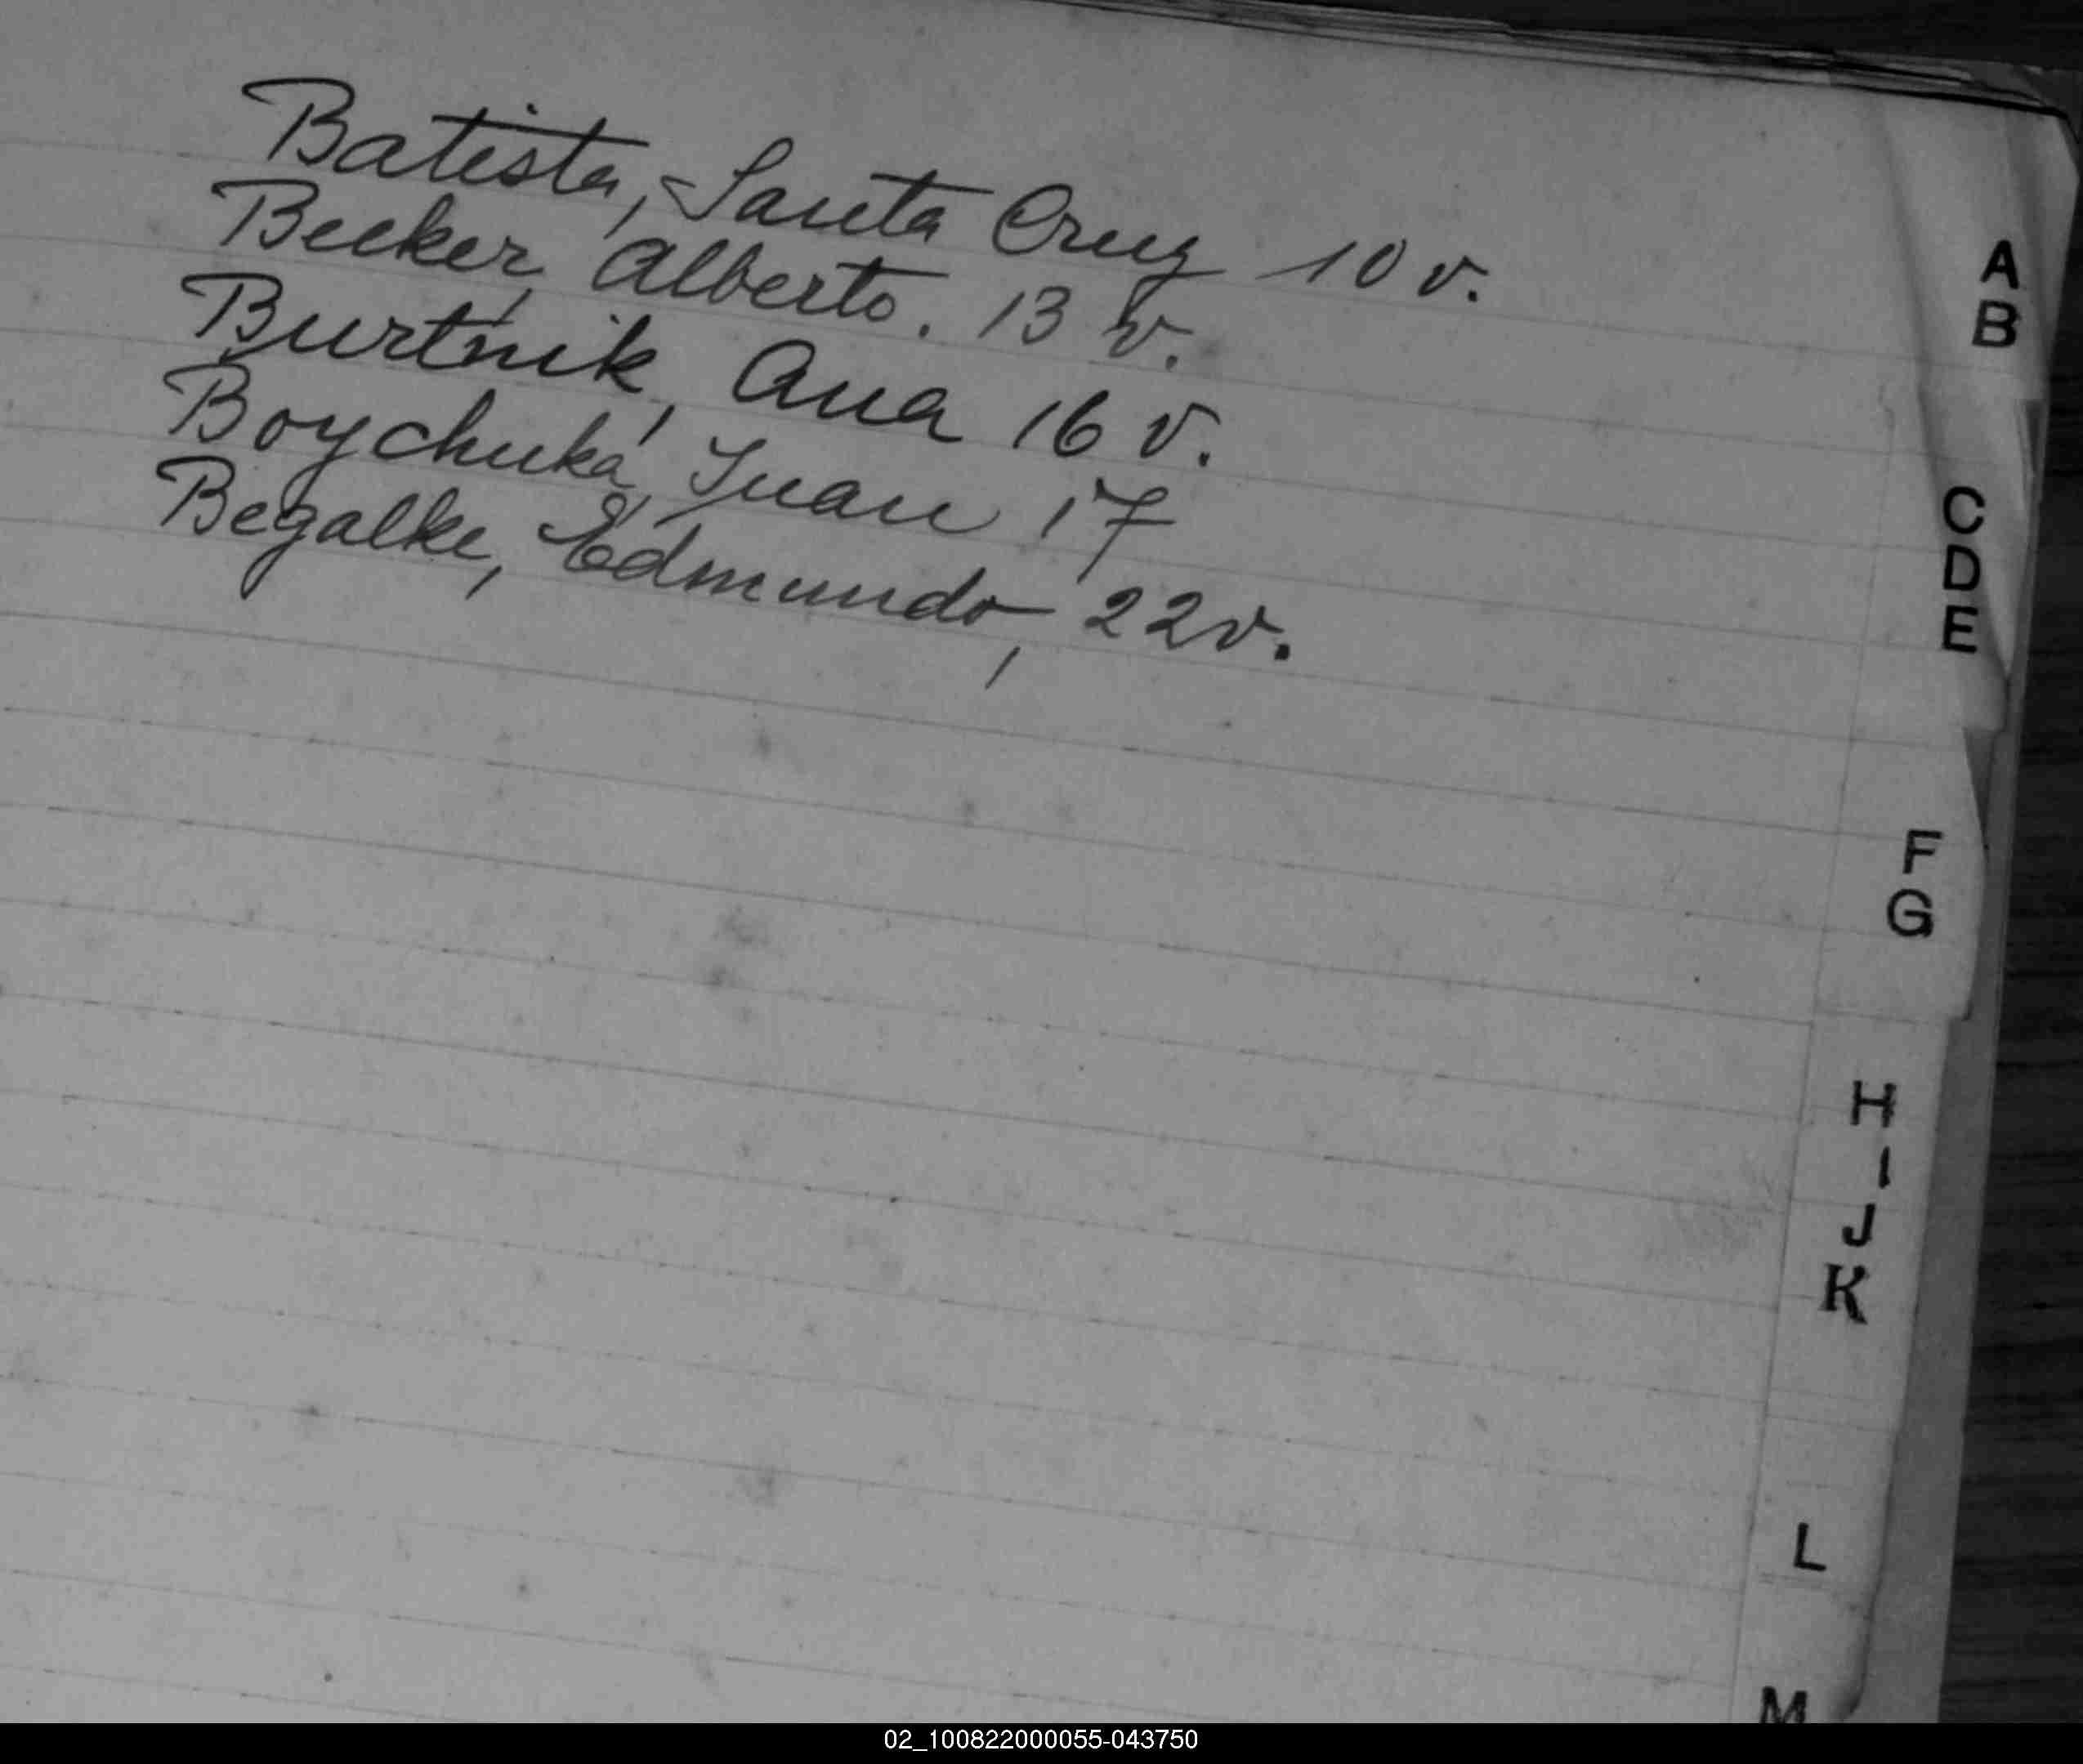 Batista, Santa Cruz 10 v.
Becker, Alberto. 13 v.
Burtnik, Ana 16 v.
Boychuka, Juan 17
Begalke, Edmundo, 22v.
A
B
C
D
E
F
G
H
I
J
K
L
M
02_100822000055-043750